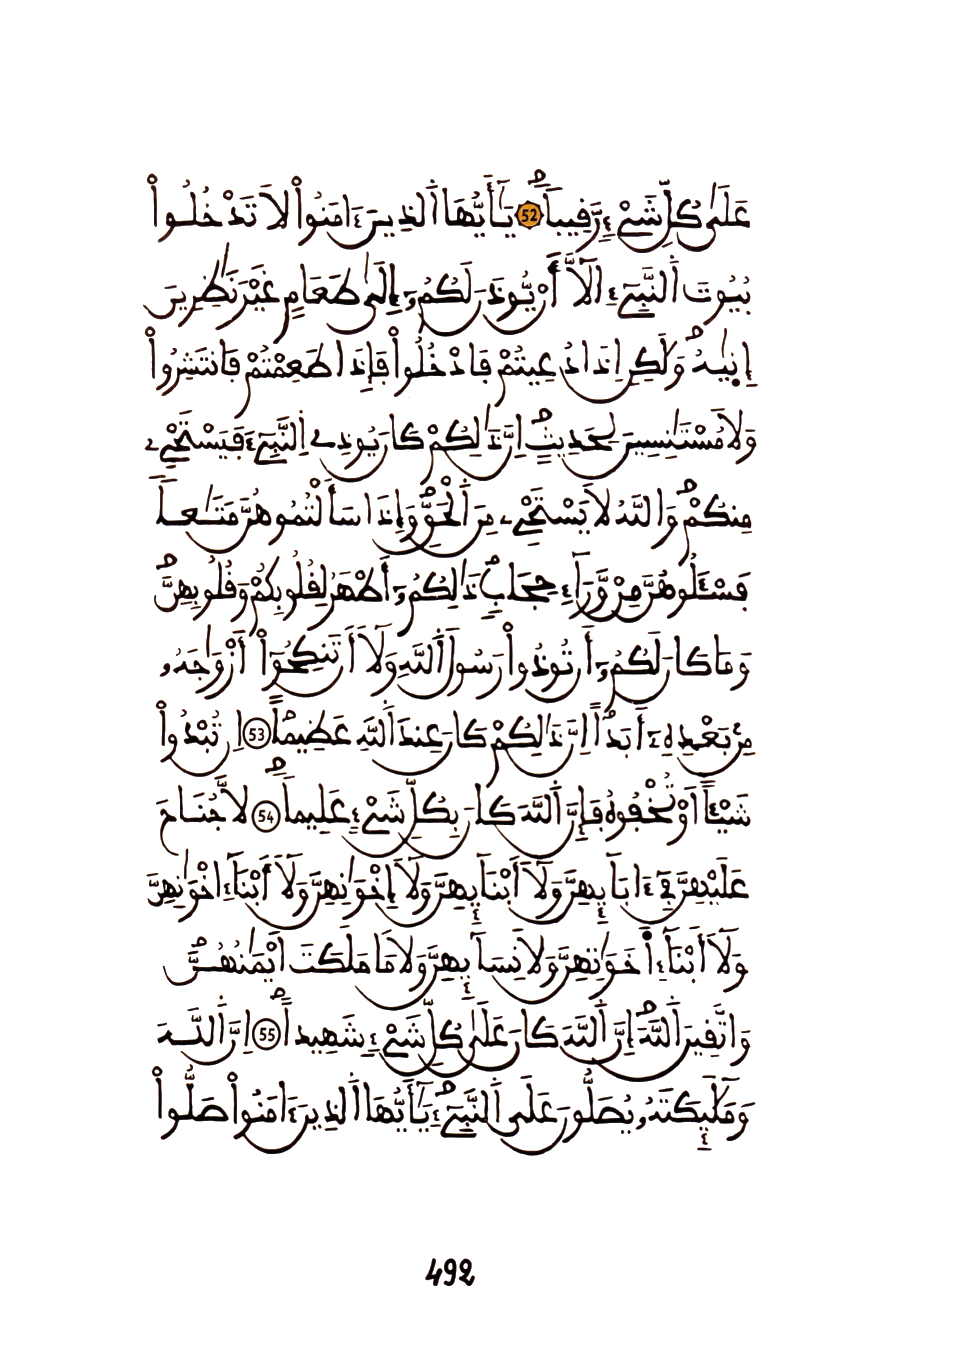 عَلَىٰ كُلِّ شَےْءٍ رَّقِيباًۖ 52 يَٰٓأَيُّهَا اَ۬لذِينَ ءَامَنُواْ لَا تَدْخُلُواْ
بُيُوتَ اَ۬لنَّبِےٓءِ الَّآ أَنْ يُّوذَنَ لَكُمُۥٓ إِلَىٰ طَعَامٍ غَيْرَ نَٰظِرِينَ
إِنٜيٰهُۖ وَلَٰكِنِ اِذَا دُعِيتُمْ فَادْخُلُواْ فَإِذَا طَعِمْتُمْ فَانتَشِرُواْ
وَلَا مُسْتَٰنِسِينَ لِحَدِيثٍۖ اِنَّ ذَٰلِكُمْ كَانَ يُوذِے اِ۬لنَّبِےٓءَ فَيَسْتَحْيِۦ
مِنكُمْۖ وَاللَّهُ لَا يَسْتَحْيِۦ مِنَ اَ۬لْحَقِّۖ وَإِذَا سَأَلْتُمُوهُنَّ مَتَٰعاً
فَسْـَٔلُوهُنَّ مِنْ وَّرَآءِ حِجَابٍۖ ذَٰلِكُمُۥٓ أَطْهَرُ لِقُلُوبِكُمْ وَقُلُوبِهِنَّۖ
وَمَا كَانَ لَكُمُۥٓ أَن تُوذُواْ رَسُولَ اَ۬للَّهِ وَلَآ أَن تَنكِحُوٓاْ أَزْوَٰجَهُۥ
مِنۢ بَعْدِهِۦٓ أَبَداًۖ اِنَّ ذَٰلِكُمْ كَانَ عِندَ اَ۬للَّهِ عَظِيماًۖ 53 اِن تُبْدُواْ
شَيْـٔاً أَوْ تُخْفُوهُ فَإِنَّ اَ۬للَّهَ كَانَ بِكُلِّ شَےْءٍ عَلِيماًۖ 54 لَّا جُنَاحَ
عَلَيْهِنَّ فِےٓ ءَابَآئِهِنَّ وَلَآ أَبْنَآئِهِنَّ وَلَآ إِخْوَٰنِهِنَّ وَلَآ أَبْنَآءِ اخْوَٰنِهِنَّ
وَلَآ أَبْنَآءِ اَ۬خَوَٰتِهِنَّ وَلَا نِسَآئِهِنَّ وَلَا مَا مَلَكَتَ اَيْمَٰنُهُنَّۖ
وَاتَّقِينَ اَ۬للَّهَۖ إِنَّ اَ۬للَّهَ كَانَ عَلَىٰ كُلِّ شَےْءٍ شَهِيداًۖ 55 اِنَّ اَ۬للَّهَ
وَمَلَٰٓئِكَتَهُۥ يُصَلُّونَ عَلَى اَ۬لنَّبِےٓءِۖ يَٰٓأَيُّهَا اَ۬لذِينَ ءَامَنُواْ صَلُّواْ
492